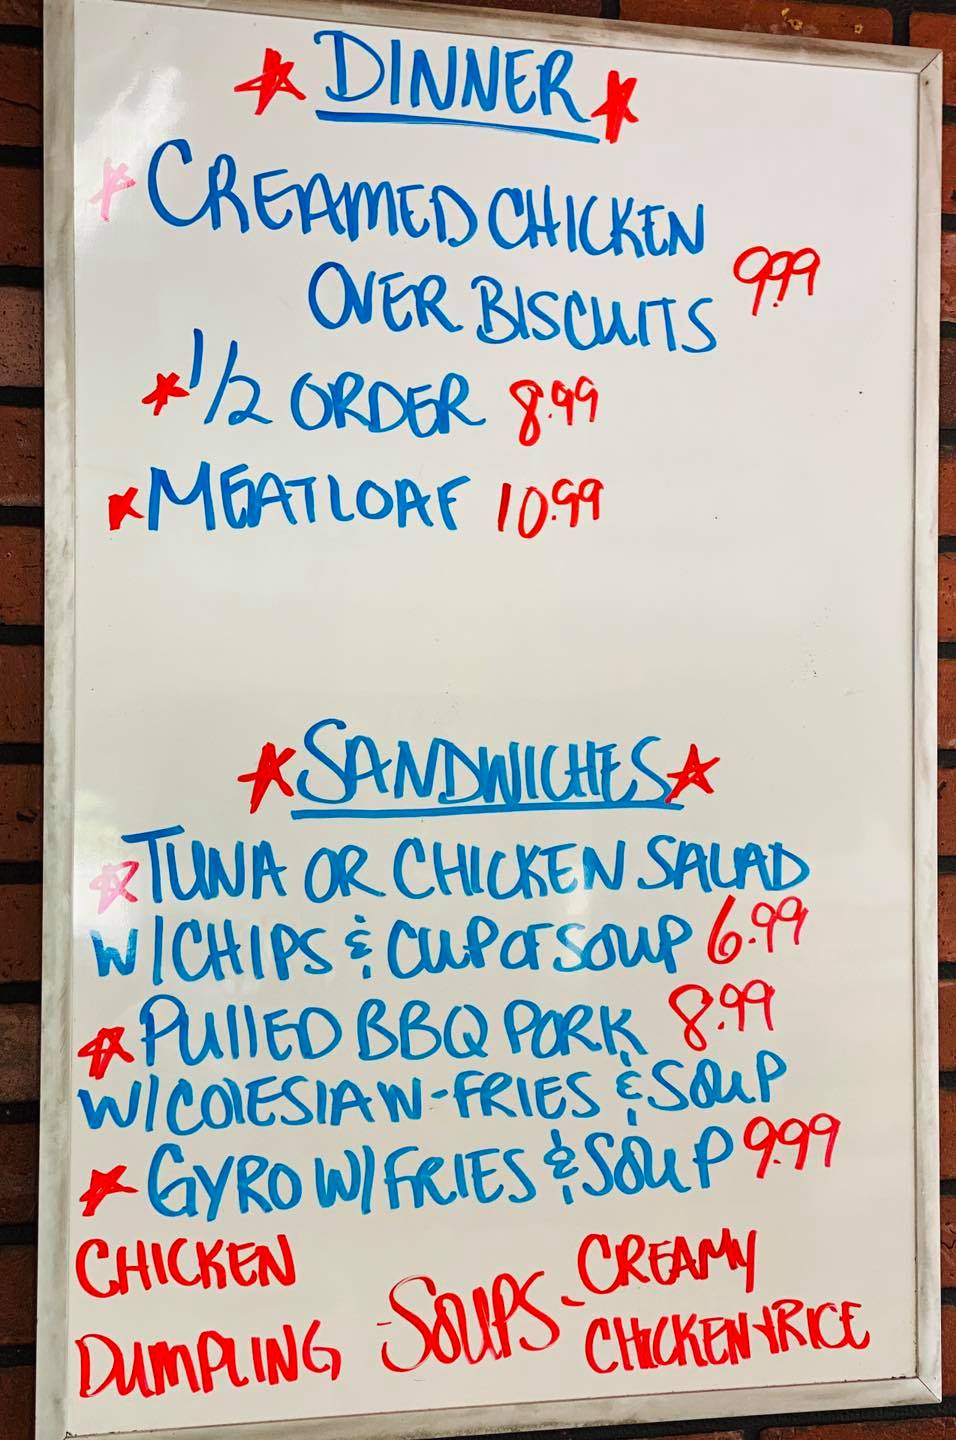 DINNER
CREAMED CHICKEN
OVER BISCUITS 9.99
1/2 ORDER 8.99
MEATLOAF 10.99
SANDWICHES
TUNA OR CHICKEN SALAD
W/CHIPS & CUP OF SOUP 6.99
PULLED BBQ PORK 8.99
W/COLESLAW-FRIES & SOUP
GYRO W/FRIES & SOUP 9.99
CHICKEN
DUMPLING -SOUPS- CREAMY
CHICKEN + RICE